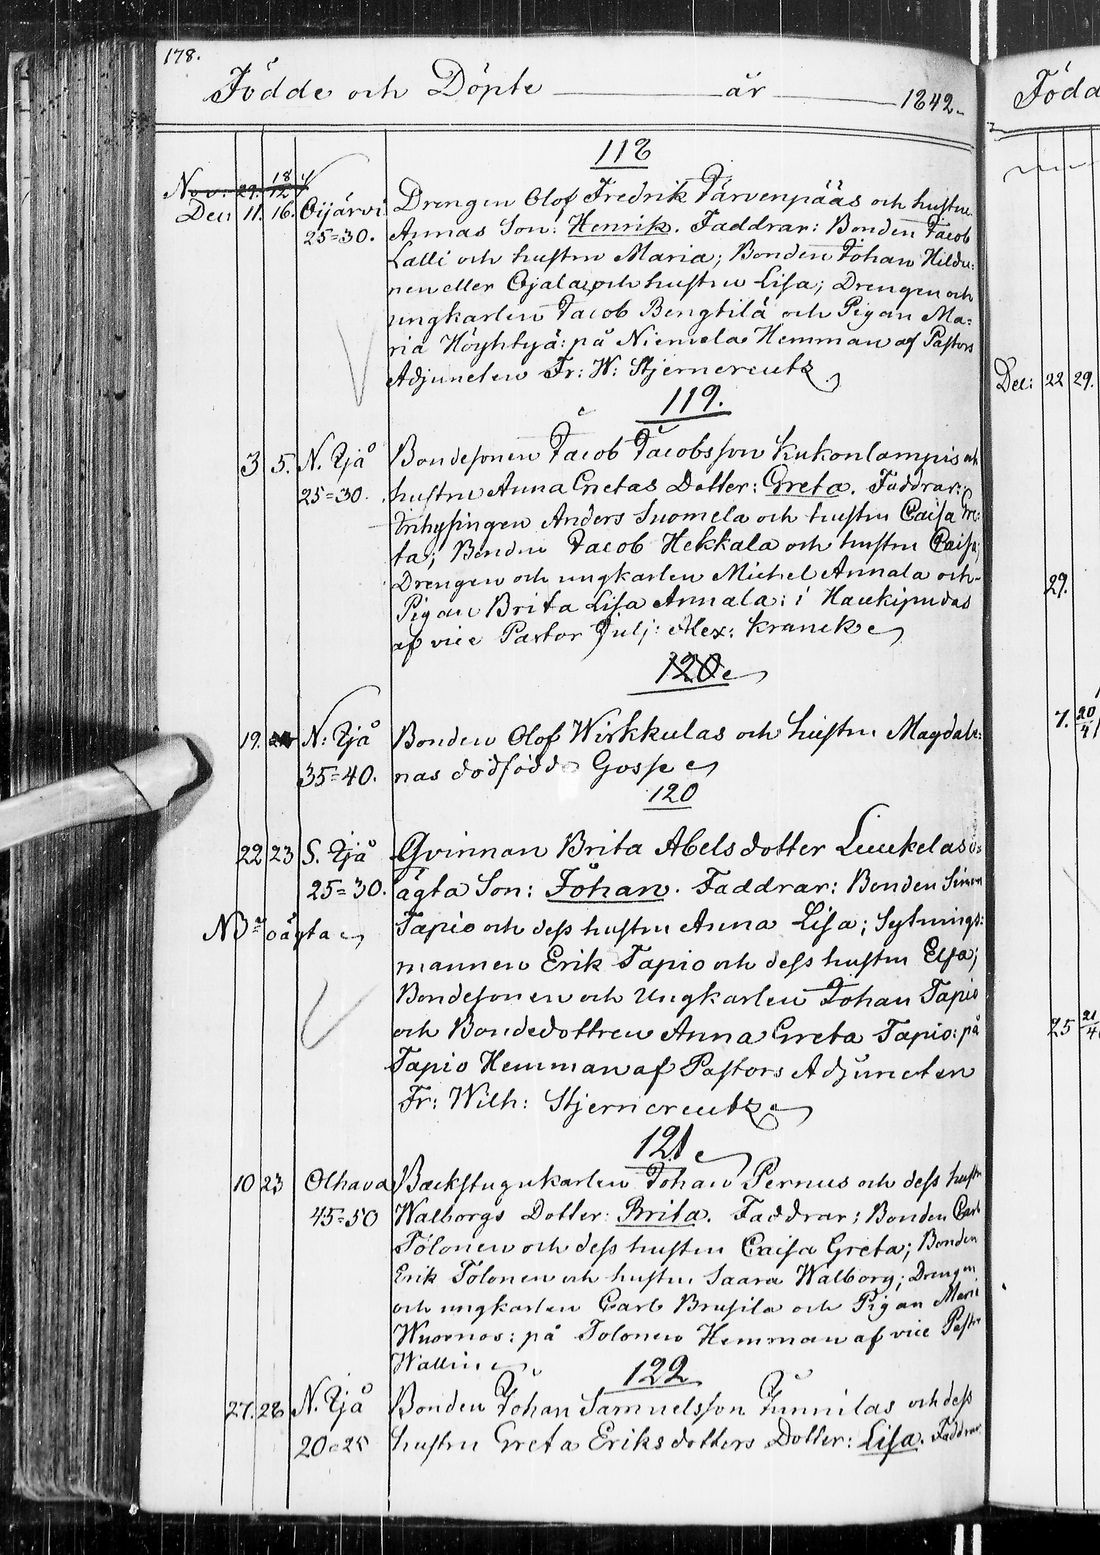 178.
Födde och Döpte år 1842
118
Nov: 29.
Dec: 11. 16. Oijärvi Drengen Olof Fredrik Järvenpääs och hustru
25=30. Annas Son: Henrik. Faddrar: Bonden Jacob
Lalli och hustru Maria; Bonden Johan Hildu:
nen eller Ojala och hustru Lisa; Drengen och
ungkarlen Jacob Bengtilä och Pigan Ma=
ria Höyhtyä: på Niemelä Hemman af Pastors
Adjuncten Fr: W: Stjerncreutz
119.
3 5. N. Ijå Bondesonen Jacob Jacobsson Kukonlampis och
25=30. hustru Anna Gretas Dotter: Greta. Faddrar:
Inhysingen Anders Suomela och hustru Caisa Gre:
ta; Bonden Jacob Hekkala och hustru Caisa;
Drengen och ungkarlen Michel Annala och
Pigan Brita Lisa Annala: i Haukipudas
af vice Pastor Julj: Alex: Kranck
120
19. N: Ijå Bonden Olof Wirkkulas och hustru Magdale:
35=40. nas dödfödde Gosse
120
22 23 S. Ijå Qvinnan Brita Abelsdotter Liukelas o=
25=30. ägta Son: Johan. Faddrar: Bonden Simon
NB oägta Tapio och dess hustru Anna Lisa; Sytnings:
mannen Erik Tapio och dess hustru Elsa;
Bondesonen och Ungkarlen Johan Tapio
och Bondedottren Anna Greta Tapio: på
Tapio Hemman af Pastors Adjuncten
Fr: Wilh: Stjerncreutz
121
10 23 Olhava Backstugukarlen Johan Pernus och dess hustru
45=50 Walborgs Dotter: Brita. Faddrar: Bonden Carl
Tolonen och dess hustru Caisa Greta; Bonden
Erik Tolonen och hustru Saara Walborg; Drengen
och ungkarlen Carl Brusila och Pigan Maria
Wuornos: på Tolonen Hemman af vice Pastor
Wallin
122
27. 28 N. Ijå Bonden Johan Samuelsson Junnilas och dess
20=25 hustru Greta Eriksdotters Dotter: Lisa. Faddrar
Född
Dec: 22 29.
29.
7. 20/4
25 21/4